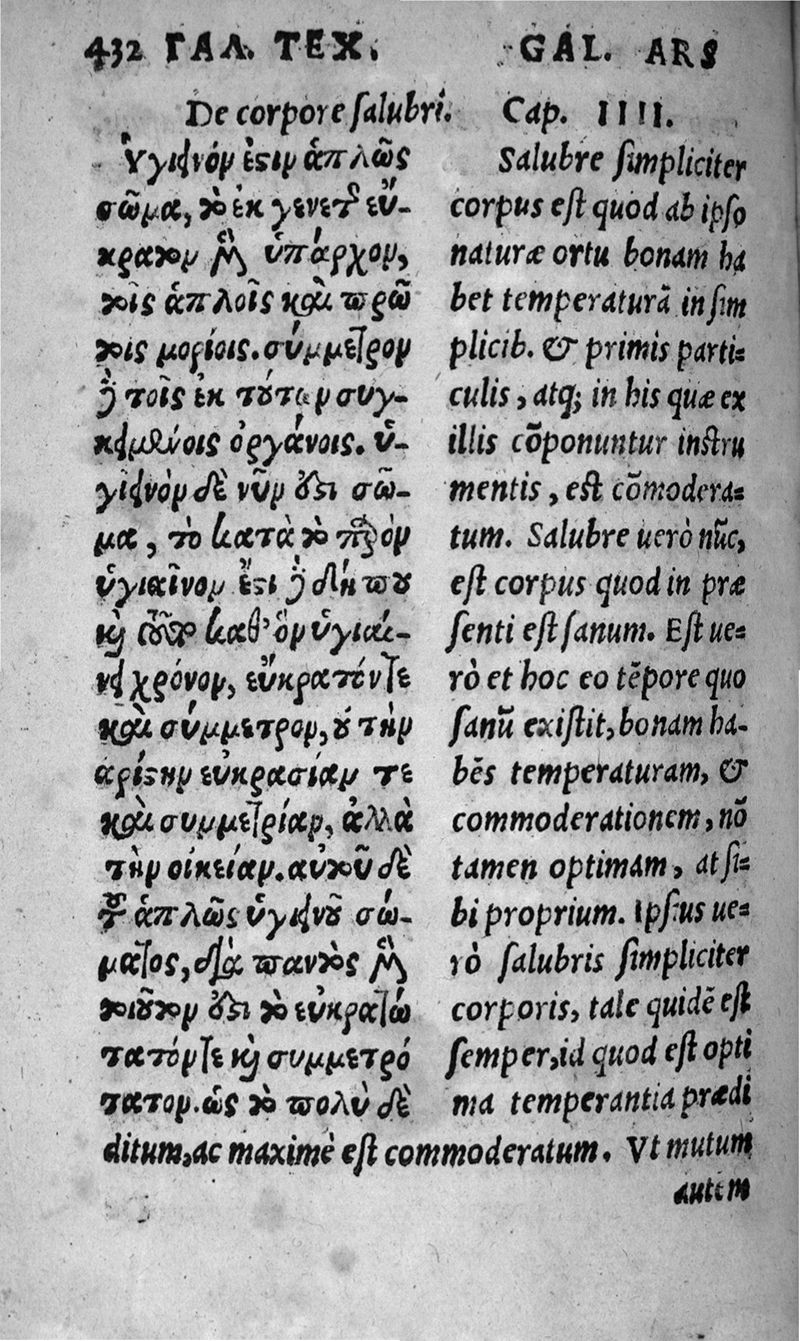 432 ΓΑΛ. ΤΕΧ. GAL. ARS
De corpore ſalubri. Cap. IIII.
Ὑγιεινόν ἐστιν ἁπλῶς
σῶμα, τὸ ἐκ γενετῆς εὔ-
κρατον μὲν ὑπάρχον,
τοῖς ἁπλοῖς καὶ πρώ
τοις μορίοις. σύμμετρον
δὲ τοῖς ἐκ τούτων συγ-
κειμένοις ὀργάνοις. ὑ-
γιεινὸν δὲ νῦν ἐστι σῶ-
μα, τὸ κατὰ τὸ παρὸν
ὑγιαῖνον ἔστι δὲ δήπου
καὶ τοῦτο καθ’ ὃν ὑγιαί-
νει χρόνον, εὔκρατόν τε
καὶ σύμμετρον, οὐ τὴν
ἀρίστην εὐκρασίαν τε
καὶ συμμετρίαν, ἀλλὰ
τὴν οἰκείαν. αὐτοῦ δὲ
τοῦ ἁπλῶς ὑγιεινοῦ σώ-
ματος, διὰ παντὸς μὲν
τοιοῦτον ἐστι τὸ εὐκρατώ
τατόν τε καὶ συμμετρό
τατον. ὡς τὸ πολὺ δὲ
Salubre ſimpliciter
corpus eſt quod ab ipſo
naturæ ortu bonam ha
bet temperaturā in ſim
plicib. & primis parti-
culis, atq; in his quæ ex
illis cōponuntur inſtru
mentis, eſt cōmodera-
tum. Salubre uerò nūc,
eſt corpus quod in præ
ſenti eſt ſanum. Eſt ue-
rò et hoc eo tēpore quo
ſanū exiſtit, bonam ha-
bēs temperaturam, &
commoderationem, nō
tamen optimam, at ſi-
bi proprium. Ipſius ue-
rò ſalubris ſimpliciter
corporis, tale quidē eſt
ſemper, id quod eſt opti
ma temperantia prædi
ditum, ac maximè eſt commoderatum. Vt mutum
autem